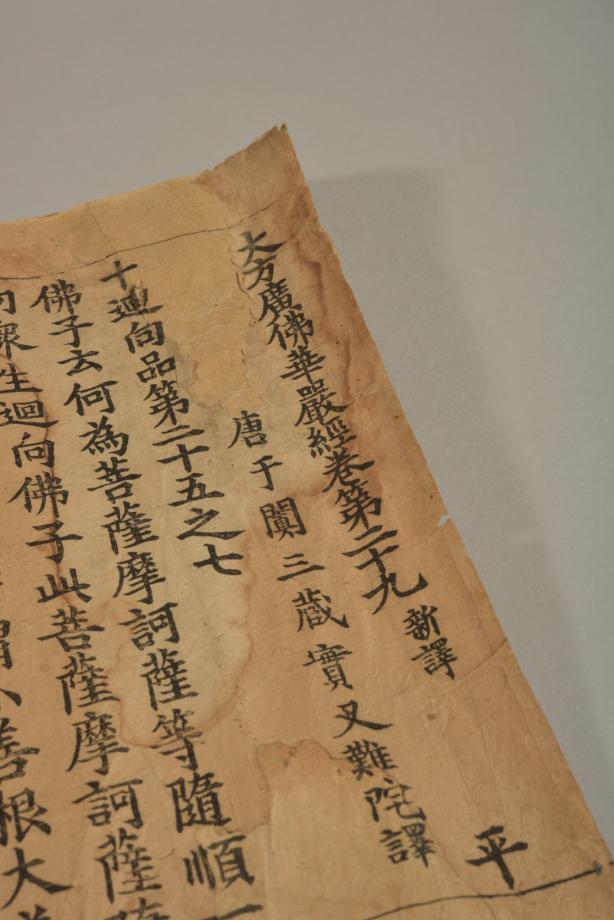 大方廣佛華嚴經卷第二十九 新譯 平
唐于闐三藏實叉難陀譯
十迴向品第二十五之七
佛子云何為菩薩摩訶薩等隨順一
衆生迴向佛子此菩薩摩訶薩
善根大